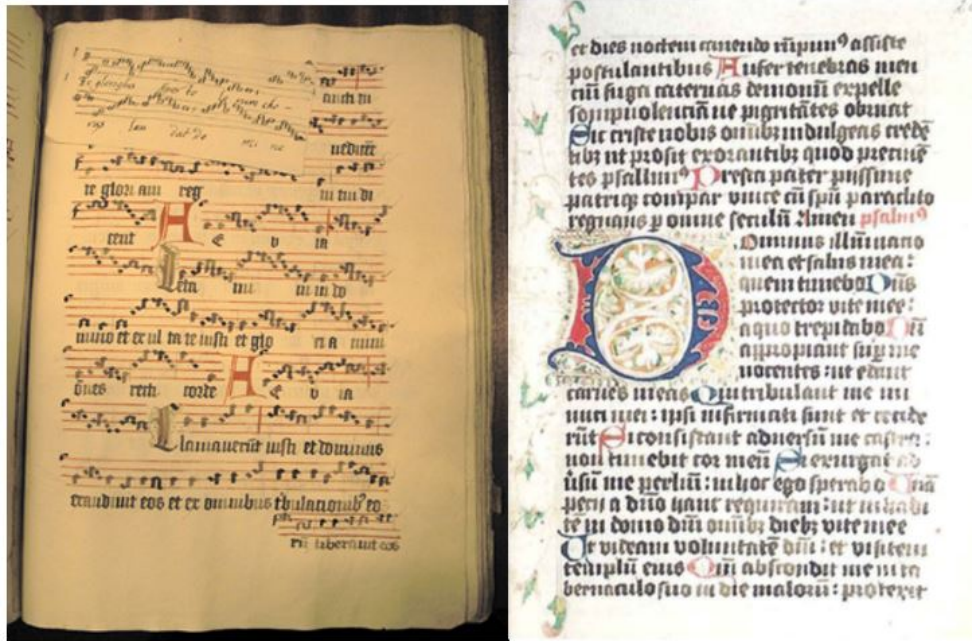 aucti tu
te gloriam reg
ni tui di
cent A E V IA
Leta mi ni in do
mino et ex ul ta te iusti et glo ri a mini
om̄es recti corde A E V IA
Clamauerūt iusti et dominus
exaudiuit eos et ex omnibus t'bulacionib' eo
rū liberauit eos
et dies noctem
postulantibus Aufer tenebras men
ciū fuga cateruas demonū expelle
sompnolenciā ne pigritātes obruat
Sic criste nobis om̄ibꝫ indulgeas credē
tibꝫ ut prosit exorantibꝫ quod precinē
tes psallimꝰ Presta pater piissime
patriqꝫ compar vnice cū spū paraclito
regnans p omne seculū Amen psalmꝰ
Dominus illūinatio
mea et salus mea :
quem timebo Dn̄s
protector vite mee :
a quo trepidabo Dū
appropiant sup me
nocentes : ut edant
carnes meas Qui tribulant me ini
mici mei : ipsi infirmati sunt et cecide
rūt Si consistant aduersū me castra :
non timebit cor meū Si exurgat ad
ūsū me preliū : in hoc ego sperabo Vnā
pecii a dn̄o hanc requiram : ut inhabi
te in domo dn̄i om̄ibꝫ diebꝫ vite mee
Ut videam voluntatē dn̄i : et visitem
templū eius Qm̄ abscondit me in ta
bernaculo suo in die malorū : protexit